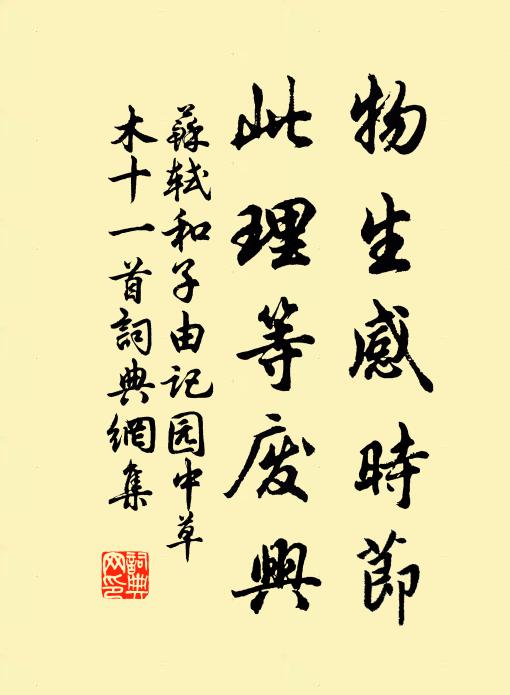 物生感時節
此理等废興
蘇轼和子由记园中草
木十一首詞典網集
詞典
网印